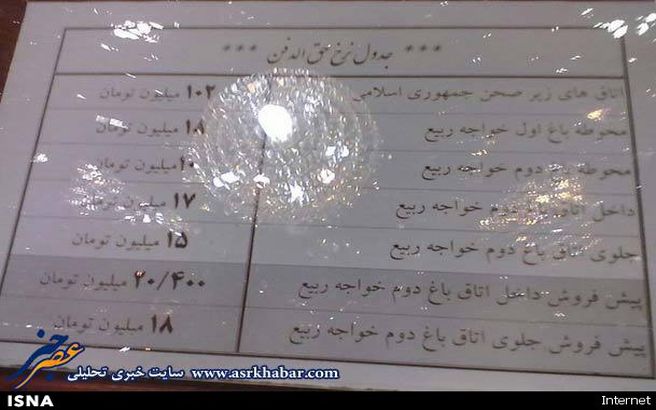 *** جدول نرخ حق الدفن ***
اتاق های زیر صحن جمهوری اسلامی ۱۰۲ میلیون تومان
محوطه باغ اول خواجه ربیع ۱۸ میلیون تومان
محوطه باغ دوم خواجه ربیع میلیون تومان
داخل اتاق دوم خواجه ربیع ۱۷ میلیون تومان
جلوی اتاق باغ دوم خواجه ربیع ۱۵ میلیون تومان
پیش فروش داخل اتاق باغ دوم خواجه ربیع ۲۰/۴۰۰ میلیون تومان
پیش فروش جلوی اتاق باغ دوم خواجه ربیع ۱۸ میلیون تومان
عصر خبر
سایت خبری تحلیلی www.asrkhabar.com
ISNA
Internet